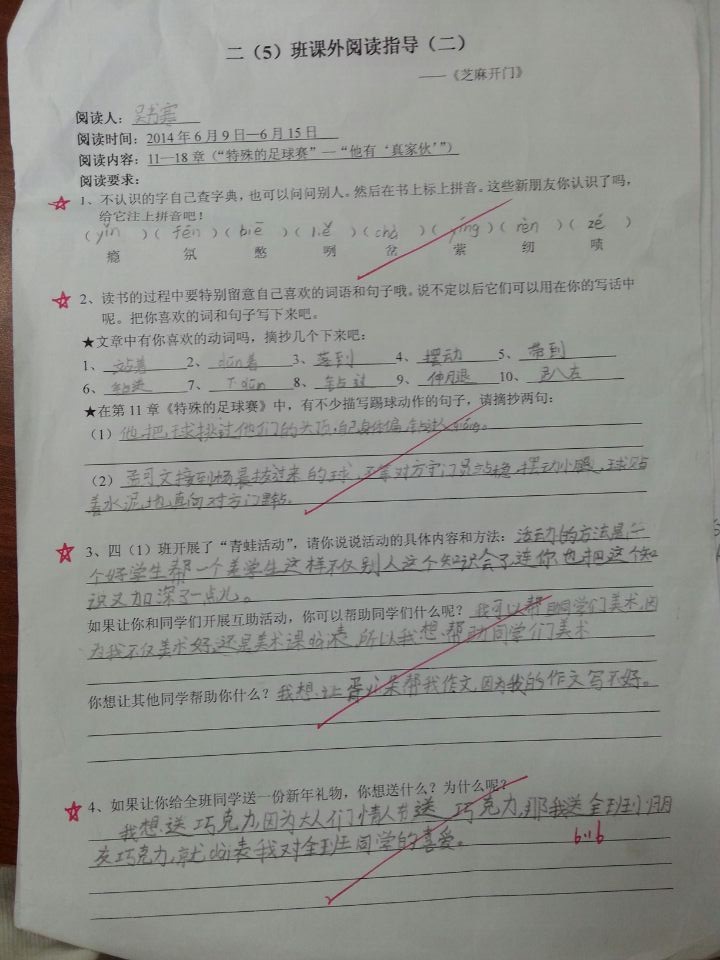 二（5）班课外阅读指导（二）
——《芝麻开门》
阅读人：吴书寒
阅读时间：2014年6月9日—6月15日
阅读内容：11—18章（“特殊的足球赛”—“他有‘真家伙’”）
阅读要求：
1、不认识的字自己查字典，也可以问问别人。然后在书上标上拼音。这些新朋友你认识了吗，
给它注上拼音吧！
（yǐn）（fēn）（biē）（liě）（chà）（yíng）（rèn）（zé）
瘾 氛 憋 咧 岔 萦 纫 啧
2、读书的过程中要特别留意自己喜欢的词语和句子哦。说不定以后它们可以用在你的写话中
呢。把你喜欢的词和句子写下来吧。
★文章中有你喜欢的动词吗，摘抄几个下来吧：
1、站着 2、dūn着 3、落到 4、摆动 5、带到
6、 7、下dūn 8、钻过 9、伸腿 10、
★在第11章《特殊的足球赛》中，有不少描写踢球动作的句子，请摘抄两句：
（1）他把球挑过他们的头顶，自己身体偏
（2）孟司文接到杨晨拔过来的球，不等对方守门员站稳，摆动小腿，球贴
着水泥地直向对方门
3、四（1）班开展了“青蛙活动”，请你说说活动的具体内容和方法：活动的方法是一
个好学生帮一个差学生这样不仅别人这个知识会了，连你也把这个知
识又加深了一点儿。
如果让你和同学们开展互助活动，你可以帮助同学们什么呢？我可以帮助同学们美术，因
为我不仅美术好，还是美术课dài表，所以我想帮助同学们美术
你想让其他同学帮助你什么？我想让帮我作文，因为我的作文写不好。
4、如果让你给全班同学送一份新年礼物，你想送什么？为什么呢？
我想送巧克力，因为大人们情人节送巧克力，那我送全班小朋
友巧克力，就dài表我对全班同学的喜爱。
6.16